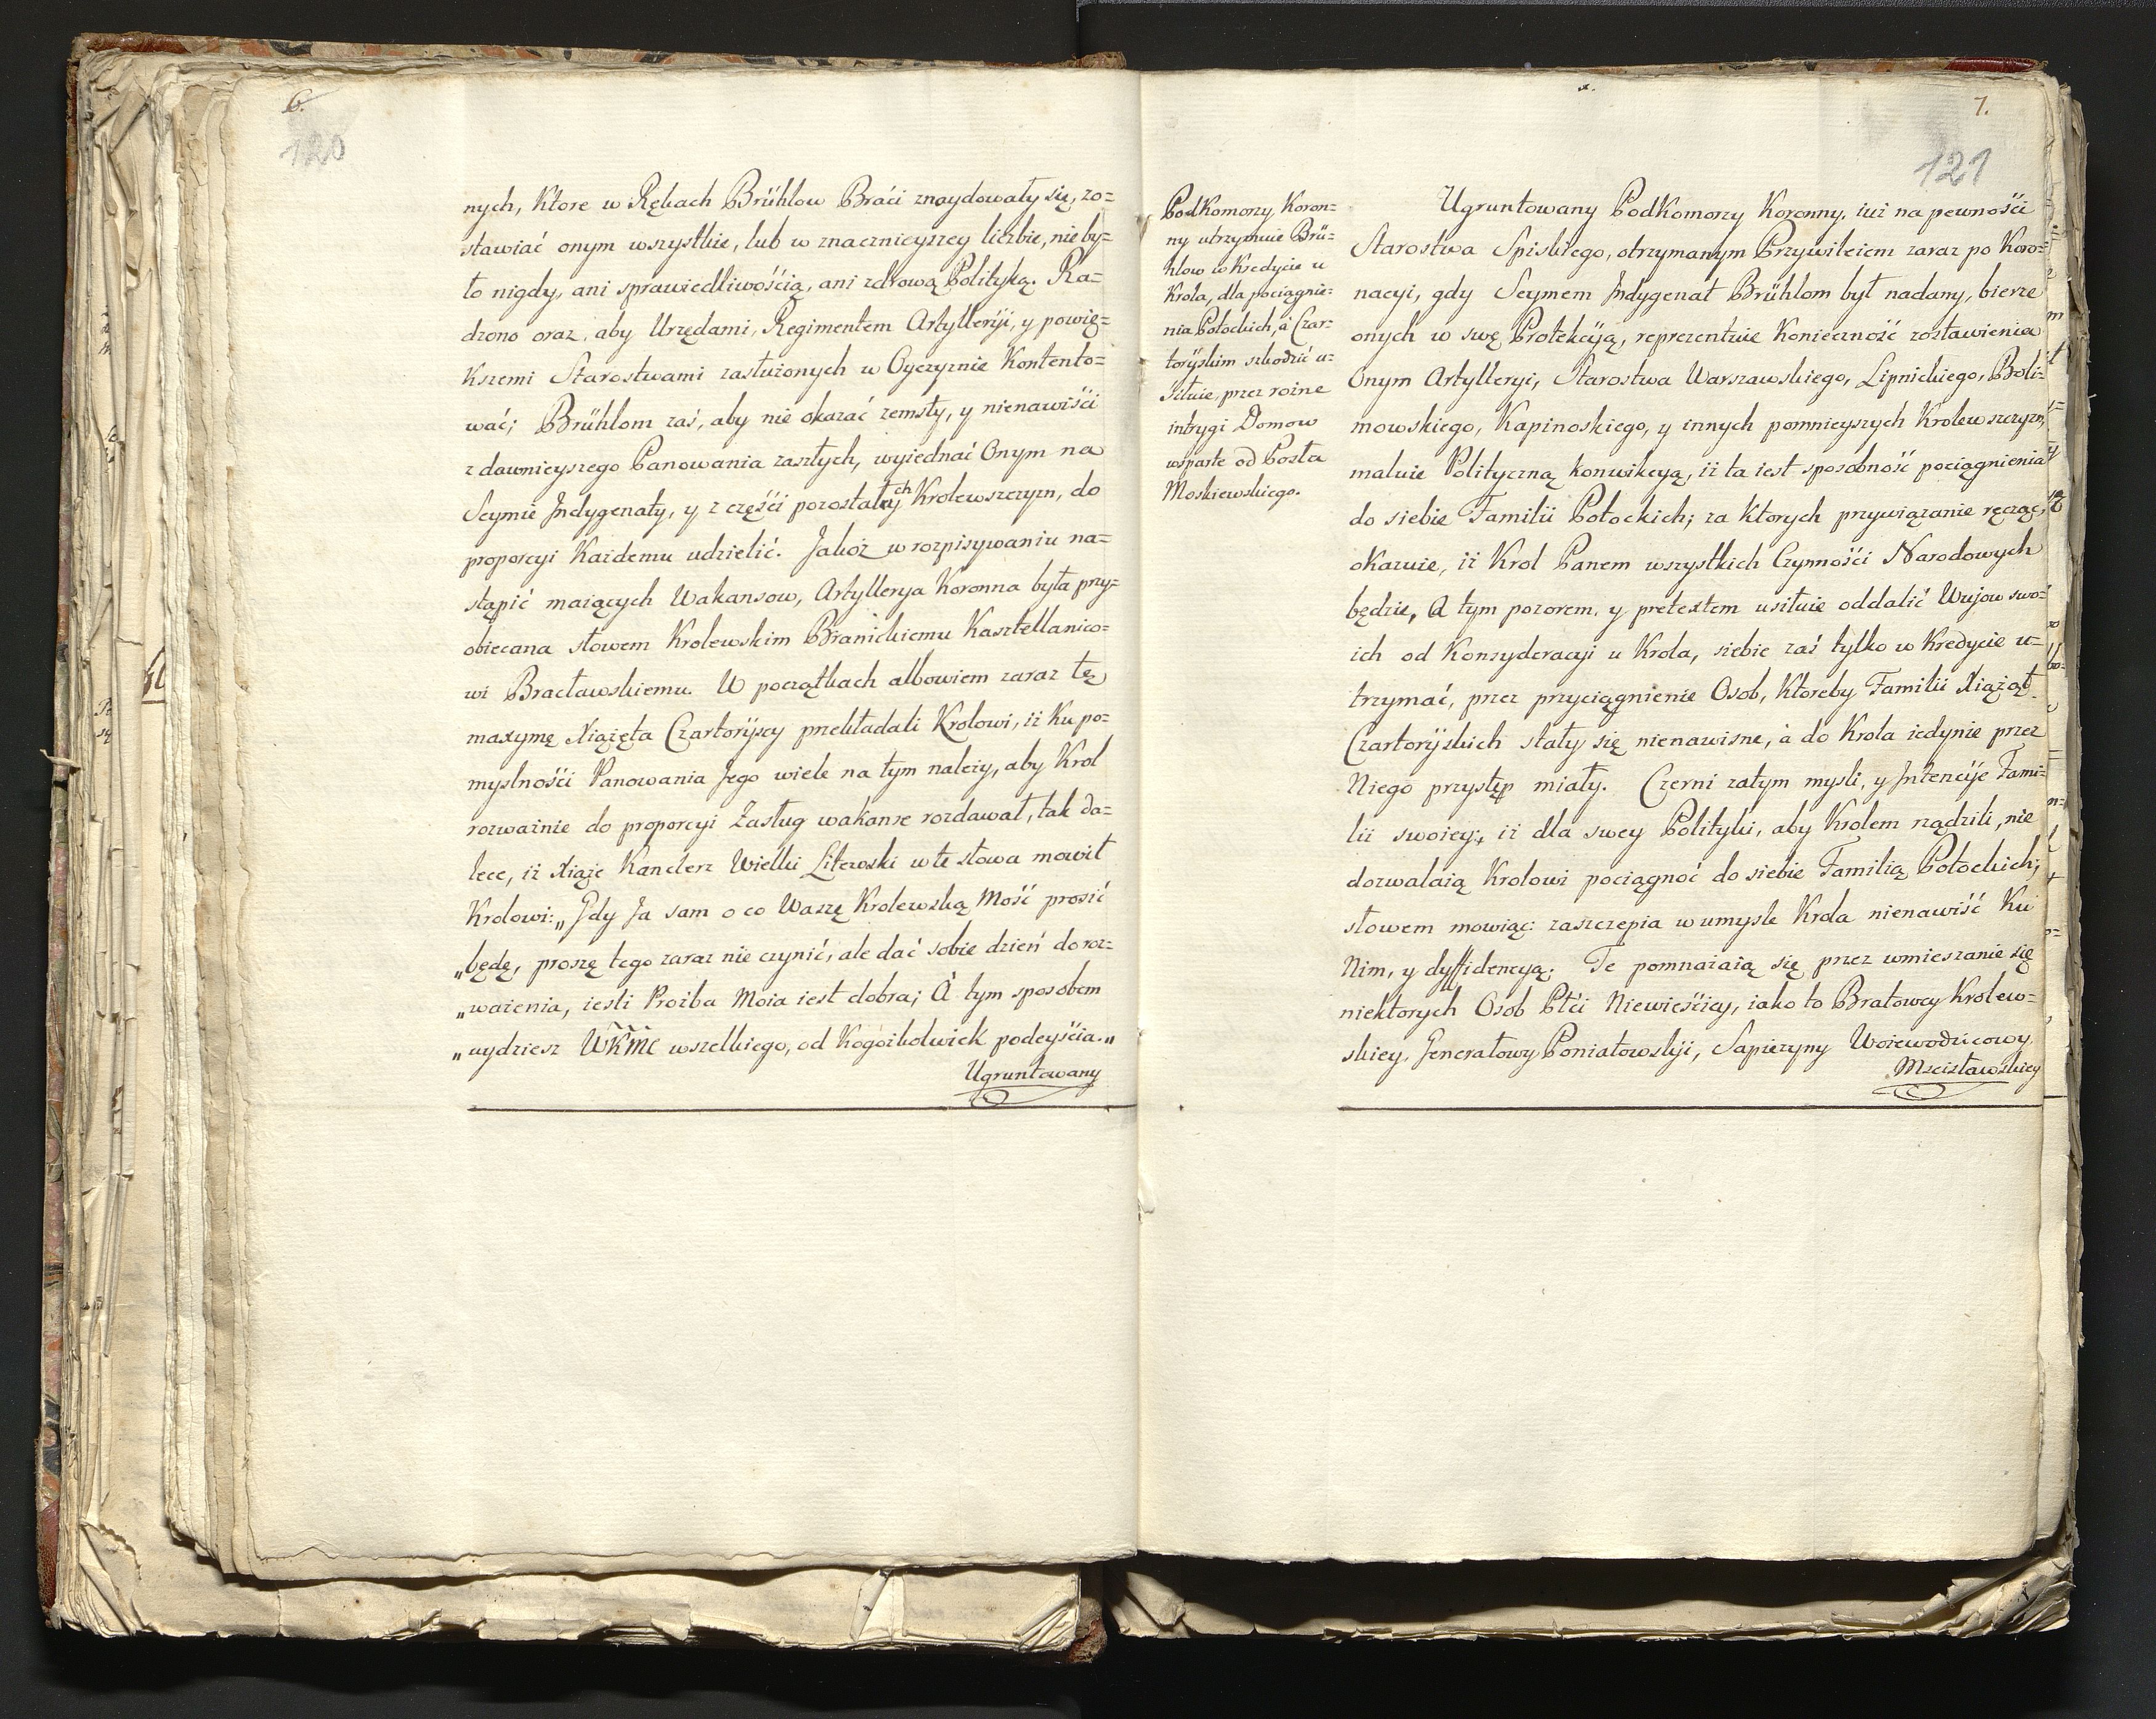 6.
120
nych, ktore w Rękach Brühlow Braći znaydowały się, zo=
stawiać onym wszystkie, lub w znacznieyszey liczbie, nie by=
ło nigdy, ani sprawiedliwośćią, ani zdrową Polityką. Ra=
dzono oraz, aby Urzędami, Regimentem Artylleryi, y powię=
kszemi Starostwami zasłużonych w Oyczyznie kontento=
wać; Brühlom zaś, aby nie okazać zemsty, y nienawiśći
z dawnieyszego Panowania zaszłych, wyiednać Onym na
Seymie Indygenaty, y z częśći pozostałych Krolewszczyzn, do
proporcyi każdemu udzielić. Jakoż w rozpisywaniu na=
stąpić maiących Wakansow, Artyllerya Koronna była przy=
obiecana słowem Krolewskim Branickiemu Kasztellanico=
wi Bracławskiemu. W początkach albowiem zaraz tę
maxymę Xiążęta Czartoryscy przekładali Krolowi, iż ku po=
myslnośći Panowania Jego wiele na tym należy, aby Krol
rozważnie do proporcyi Zasług wakanse rozdawał, tak da=
lece, iż Xiąże Kanclerz Wielki Litewski w te słowa mowił
Krolowi: „Gdy Ja sam o co Waszę Krolewską Mość prosić
„będę, proszę tego zaraz nie czynić, ale dać sobie dzień do roz=
„ważenia, iesli Proźba Moia iest dobra; A tym sposobem
„uydziesz WKMC wszelkiego, od kogożkolwiek podeyśćia.„
Ugruntowany
7.
121
Podkomorzy Koron=
ny utrzymuie Brü=
hlow w Kredycie u
Krola, dla pociągnie=
nia Potockich, à Czar=
toryskim szkodzić u=
siłuie, przez rożne
intrygi Domow
wsparte od Posła
Moskiewskiego.
Ugruntowany Podkomorzy Koronny, iuż na pewnośći
Starostwa Spiskiego, otrzymanym Przywileiem zaraz po Koro=
nacyi, gdy Seymem Indygenat Brühlom był nadany, bierze
onych w swę Protekcyą, reprezentuie konieczność zostawienia
Onym Artylleryi, Starostwa Warszawskiego, Lipnickiego, Boli=
mowskiego, Kapinoskiego, y innych pomnieyszych Krolewszczyzn,
maluie Polityczną konwikcyą, iż ta iest sposobność pociągnienia
do siebie Familii Potockich; za ktorych przywiązanie ręcząc,
okazuie, iż Krol Panem wszystkich Czynnośći Narodowych
będzie, A tym pozorem, y pretextem usiłuie oddalić Wujow swo=
ich od Konsyderacyi u Krola, siebie zaś tylko w Kredycie u=
trzymać, przez przyciągnienie Osob, ktoreby Familii Xiążąt
Czartoryskich stały się nienawisne, à do Krola iedynie przez
Niego przystęp miały. Czerni zatym mysli, y Intencyje Fami=
lii swoiey, iż dla swey Polityki, aby Krolem rządzili, nie
dozwalaią Krolowi pociągnoć do siebie Familią Potockich;
słowem mowiąc: zaszczepia w umysle Krola nienawiść ku
Nim, y dyffidencyą; Te pomnażaią się przez wmieszanie się
niektorych Osob Płći Niewieśćiey, iako to Bratowey Krolew=
skiey, Generałowy Poniatowskiji, Sapieżyny Woiewodzicowy
Mscisławskiey